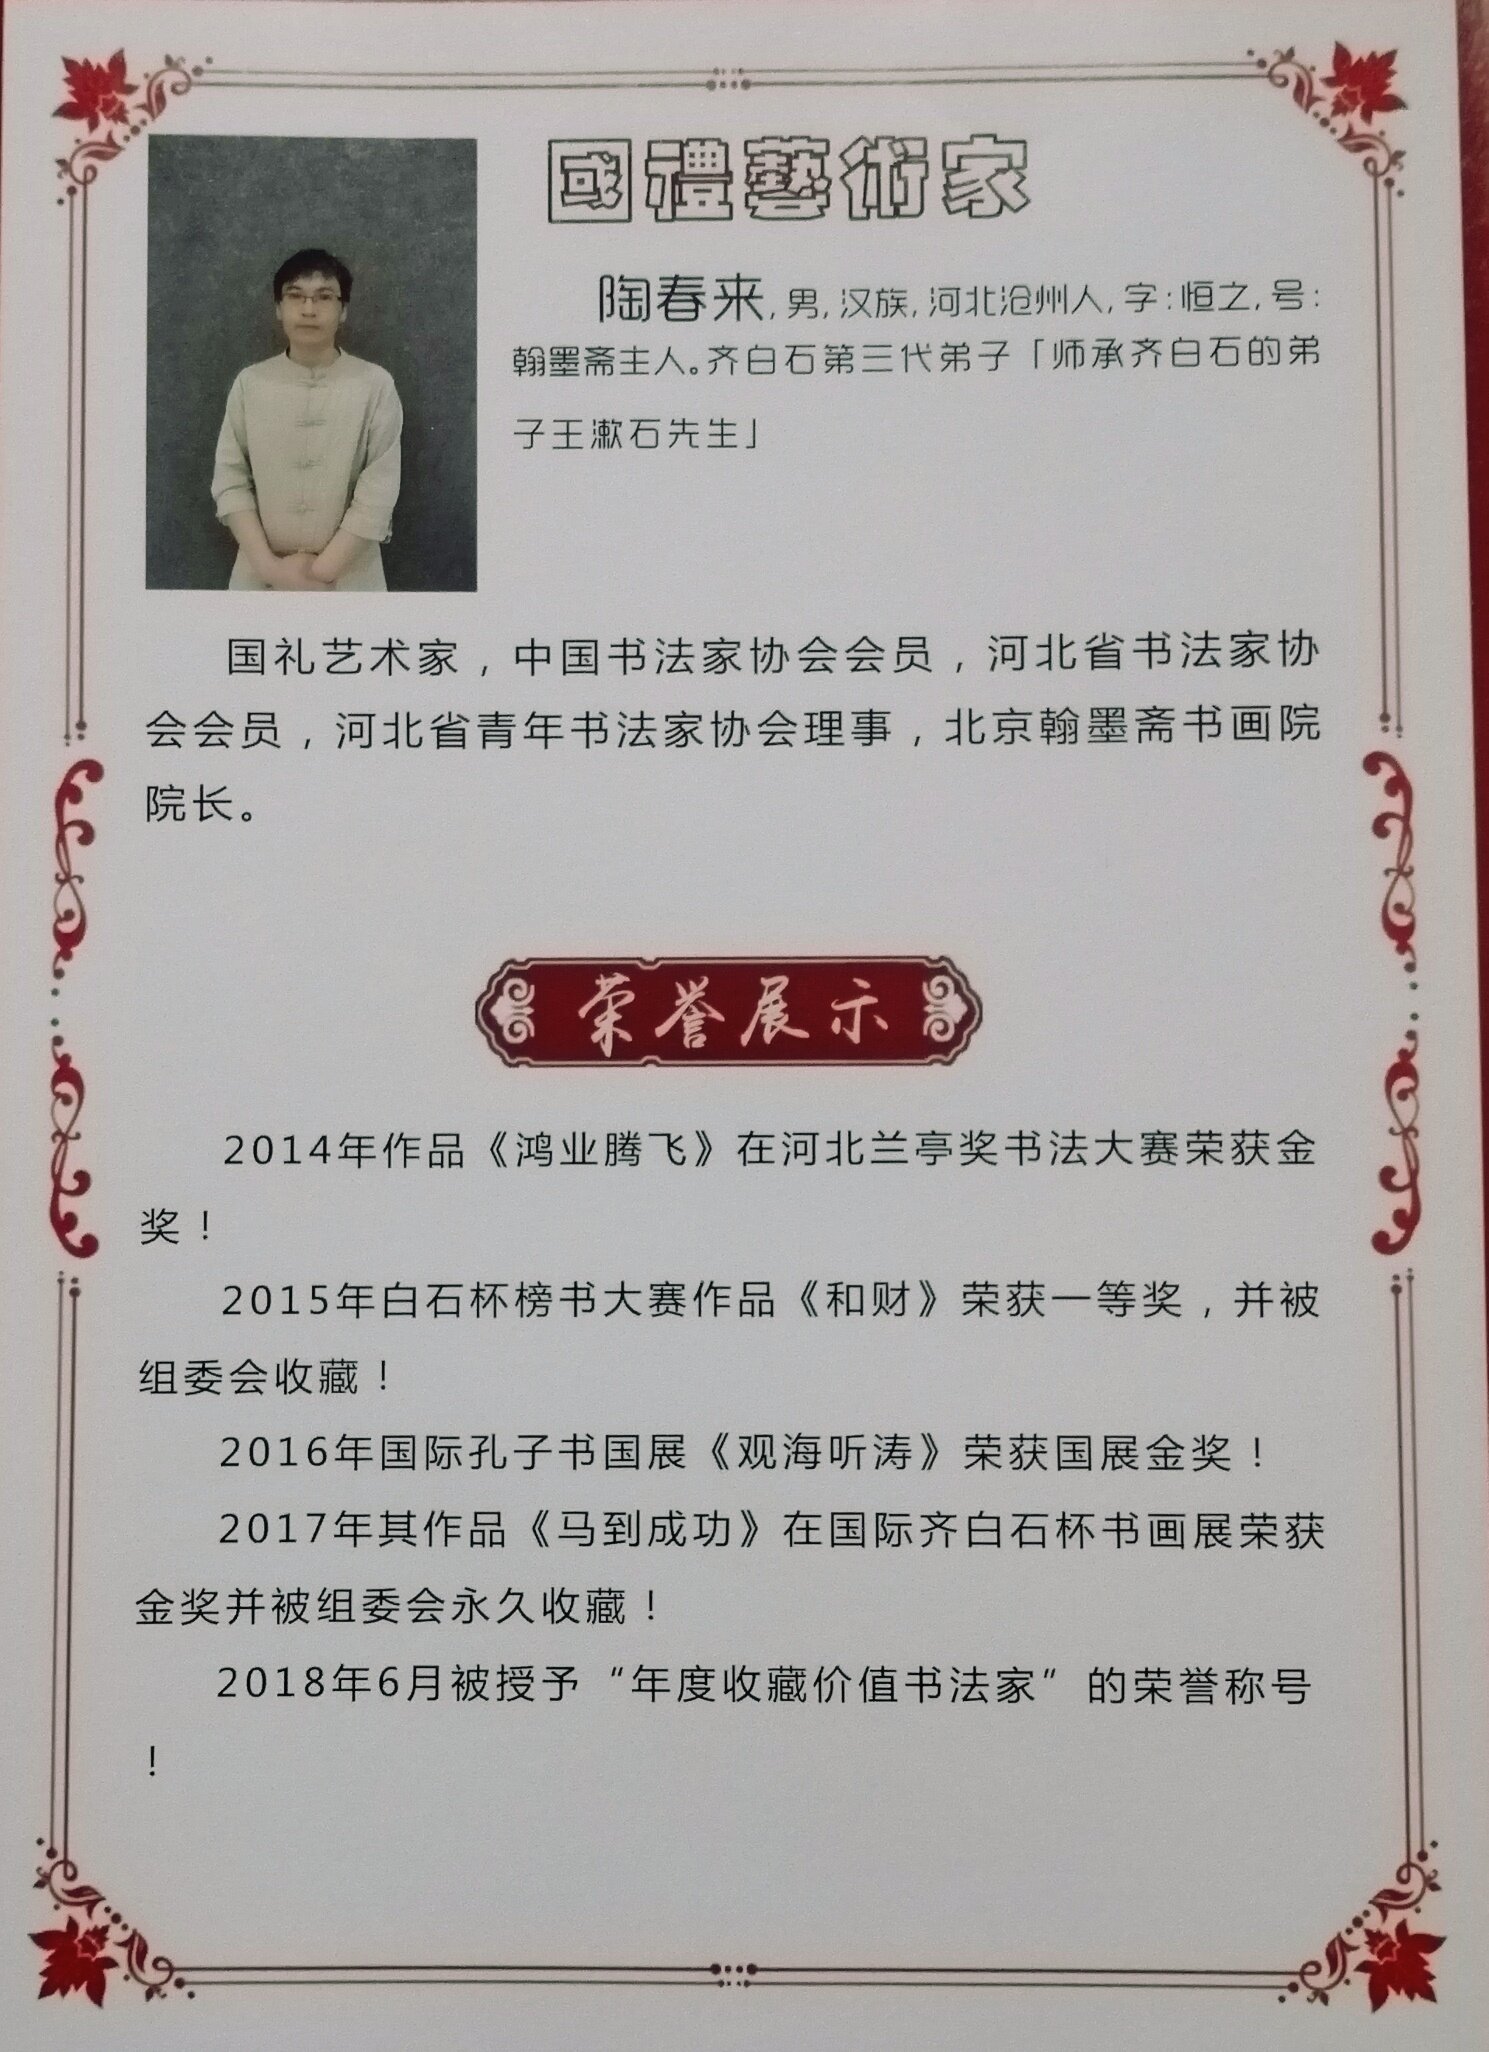 國禮藝術家
陶春来,男,汉族,河北沧州人,字:恒之,号:
翰墨斋主人。齐白石第三代弟子「师承齐白石的弟
子王漱石先生」
国礼艺术家，中国书法家协会会员，河北省书法家协
会会员，河北省青年书法家协会理事，北京翰墨斋书画院
院长。
荣誉展示
2014年作品《鸿业腾飞》在河北兰亭奖书法大赛荣获金
奖！
2015年白石杯榜书大赛作品《和财》荣获一等奖，并被
组委会收藏！
2016年国际孔子书国展《观海听涛》荣获国展金奖！
2017年其作品《马到成功》在国际齐白石杯书画展荣获
金奖并被组委会永久收藏！
2018年6月被授予“年度收藏价值书法家”的荣誉称号
！